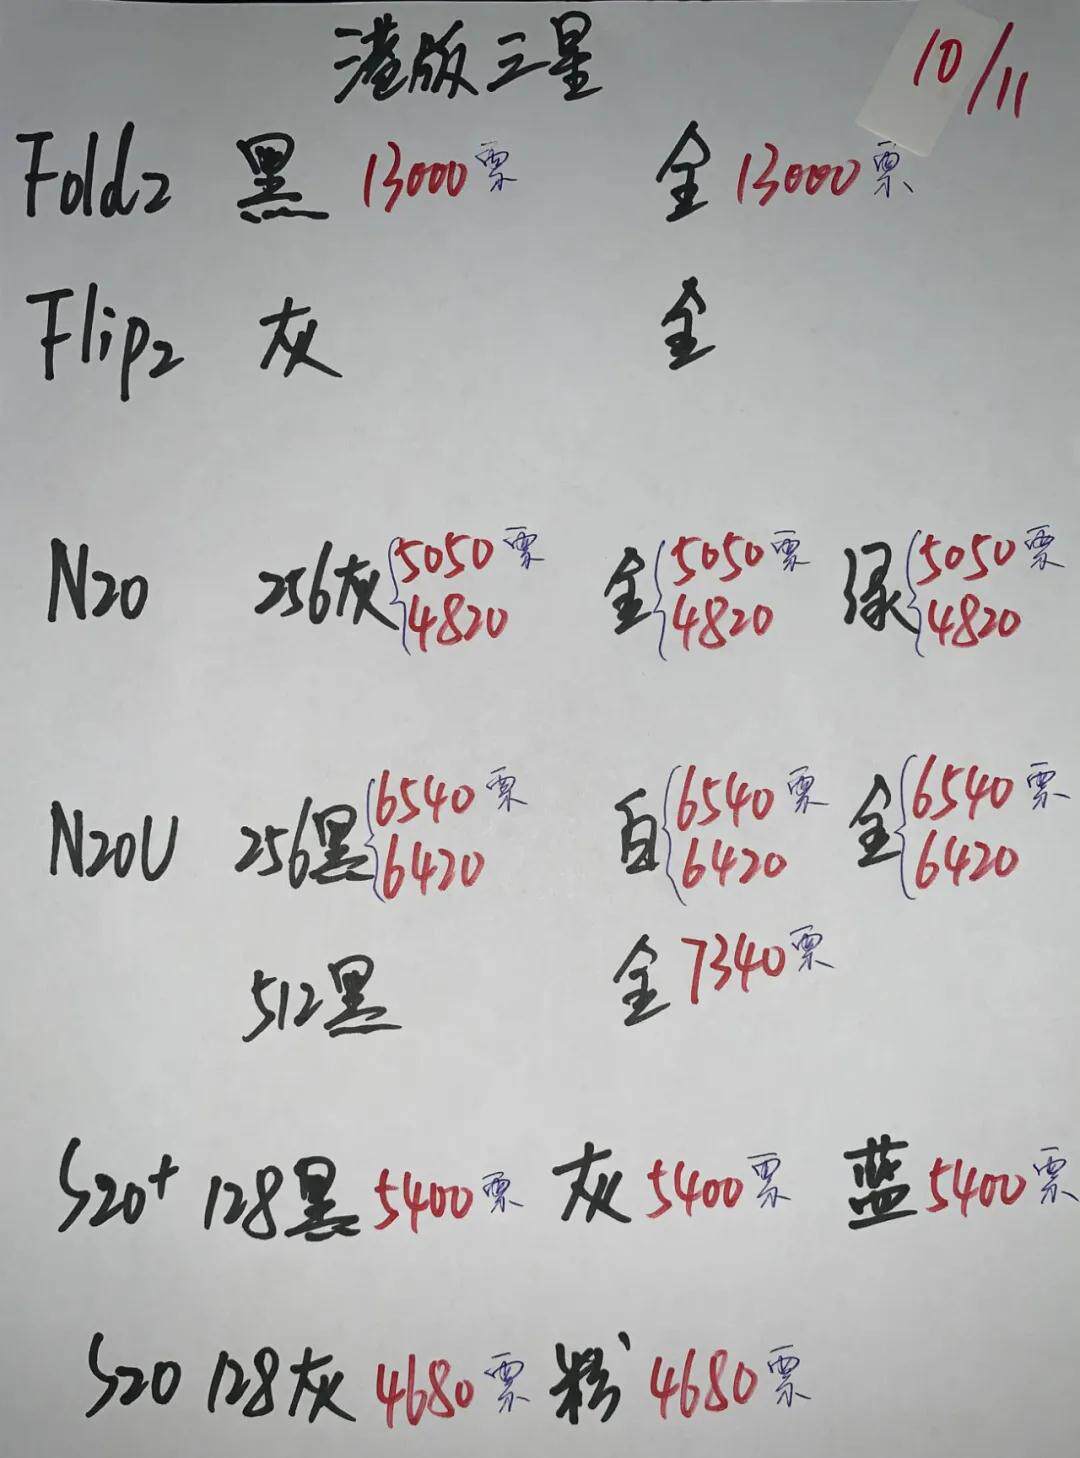 港版三星 10/11
Fold2 黑 13000票 金 13000票
Flip2 灰 金
N20 256灰 5050票 金 5050票 绿 5050票
4820 4820 4820
N20U 256黑 6540票 白 6540票 金 6540票
6420 6420 6420
512黑 金 7340票
S20+ 128黑 5400票 灰 5400票 蓝 5400票
S20 128灰 4680票 粉 4680票